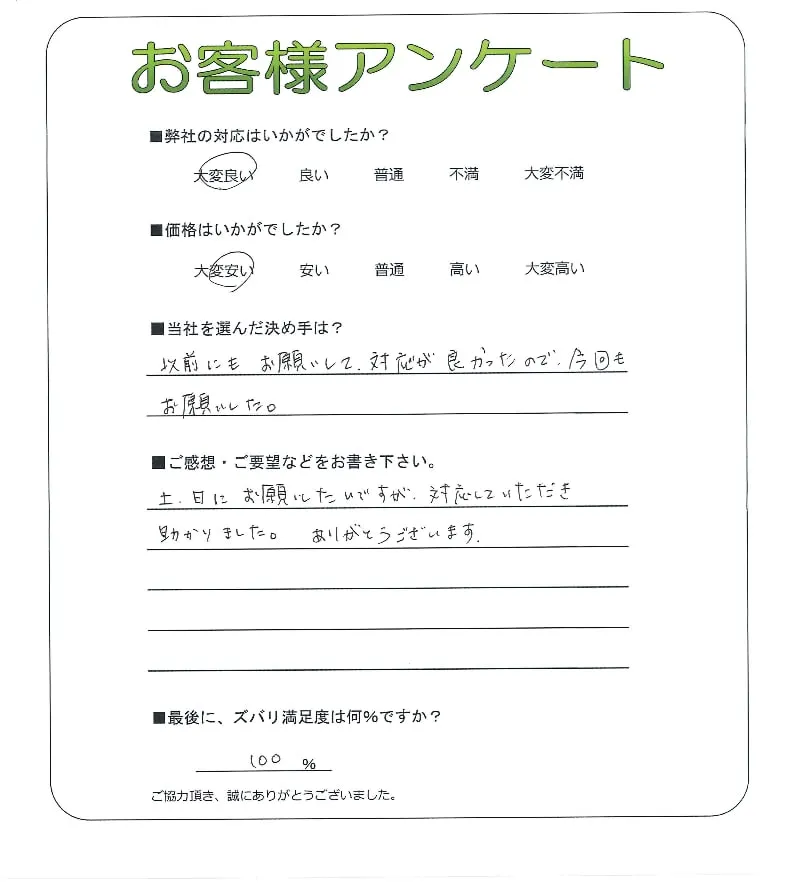 お客様アンケート
■弊社の対応はいかがでしたか？
大変良い 良い 普通 不満 大変不満
■価格はいかがでしたか？
大変安い 安い 普通 高い 大変高い
■当社を選んだ決め手は？
以前にも お願いして、対応が 良かったので、今回も
お願いした。
■ご感想・ご要望などをお書き下さい。
土、日に お願いしたいですが、対応していただき
助かりました。 ありがとうございます。
■最後に、ズバリ満足度は何%ですか？
100 %
ご協力頂き、誠にありがとうございました。